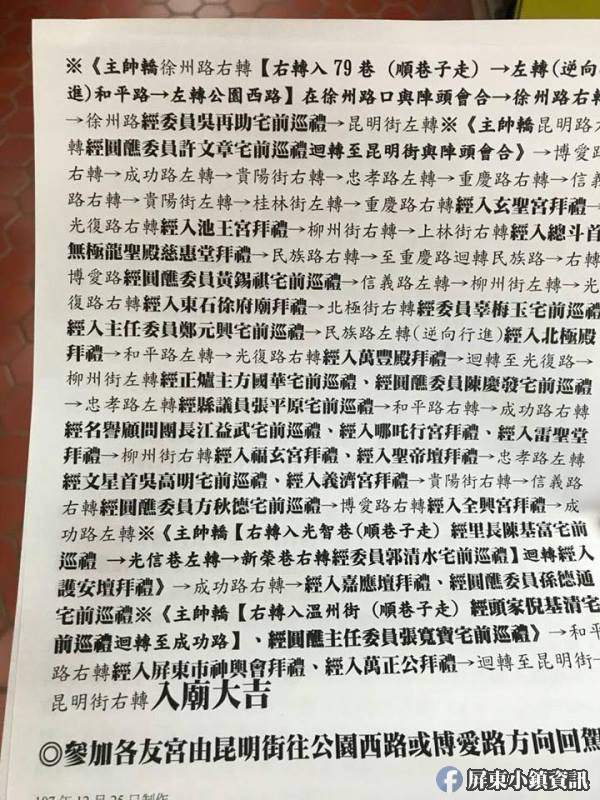 ※《主帥轎徐州路右轉【右轉入79巷(順巷子走)→左轉(逆向
進)和平路→左轉公園西路】在徐州路口與陣頭會合→徐州路右轉
→徐州路經委員吳再助宅前巡禮→昆明街左轉※《主帥轎昆明路左
轉經圓醮委員許文章宅前巡禮迴轉至昆明街與陣頭會合》→博愛路
右轉→成功路左轉→貴陽街右轉→忠孝路左轉→重慶路右轉→信義
路右轉→貴陽街左轉→桂林街左轉→重慶路右轉經入玄聖宮拜禮→
光復路右轉經入池王宮拜禮→柳州街右轉→上林街右轉經入總斗首
無極龍聖殿慈惠堂拜禮→民族路右轉→至重慶路迴轉民族路→右轉
博愛路經圓醮委員黃錫祺宅前巡禮→信義路左轉→柳州街左轉→光
復路右轉經入東石徐府廟拜禮→北極街右轉經委員辜梅玉宅前巡禮
經入主任委員鄭元興宅前巡禮→民族路左轉(逆向行進)經入北極殿
拜禮→和平路左轉→光復路右轉經入萬豐殿拜禮→迴轉至光復路→
柳州街左轉經正爐主方國華宅前巡禮、經圓醮委員陳慶發宅前巡禮
→忠孝路左轉經縣議員張平原宅前巡禮→和平路右轉→成功路右轉
經名譽顧問團長江益武宅前巡禮、經入哪吒行宮拜禮、經入雷聖堂
拜禮→柳州街右轉經入福玄宮拜禮、經入聖帝壇拜禮→忠孝路左轉
經文星首吳高明宅前巡禮、經入義濟宮拜禮→貴陽街右轉→信義路
右轉經圓醮委員方秋德宅前巡禮→博愛路右轉經入全興宮拜禮→成
功路左轉※《主帥轎【右轉入光智巷(順巷子走) 經里長陳基富宅前
巡禮 →光信巷左轉→新榮巷右轉經委員郭清水宅前巡禮】迴轉經入
護安壇拜禮》→成功路右轉→經入嘉應壇拜禮、經圓醮委員孫德通
宅前巡禮※《主帥轎【右轉入溫州街(順巷子走) 經頭家倪基清宅
前巡禮迴轉至成功路】、經圓醮主任委員張寬寶宅前巡禮》→和平
路右轉經入屏東市神輿會拜禮、經入萬正公拜禮→迴轉至昆明街→
昆明街右轉入廟大吉
◎參加各友宮由昆明街往公園西路或博愛路方向回駕
107年12月25日制作
屏東小鎮資訊